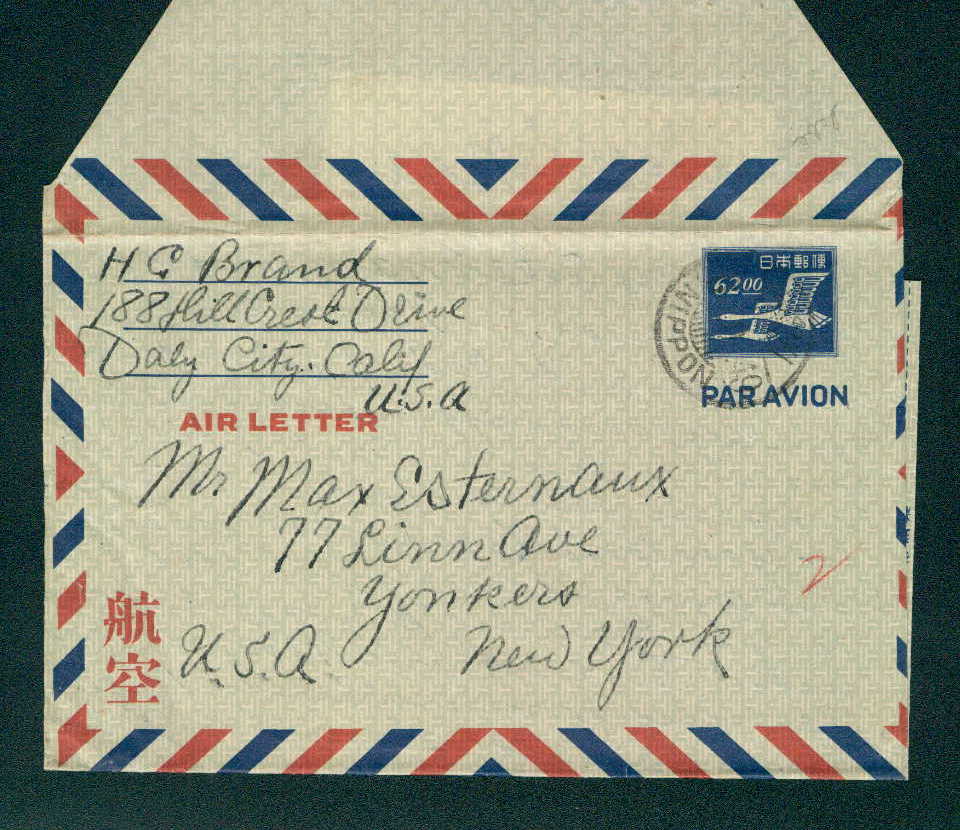 H G Brand
188 Hill Crest Drive
Daly City. Calif
U.S.A
日本郵便
62 00
NIPPON
PAR AVION
AIR LETTER
Mr Max Esternaux
77 Linn Ave
Yonkers
New York
U.S.A.
航空
2